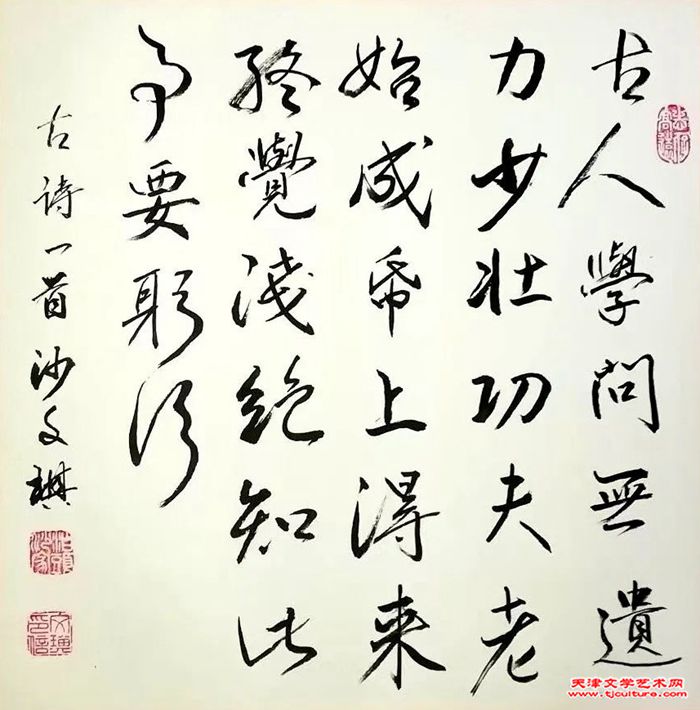 古人學問無遺
力少壯功夫老
始成帋上得来
終覺淺絕知此
事要躬行
古诗一首沙文琪
天津文学艺术网
www.tjculture.com